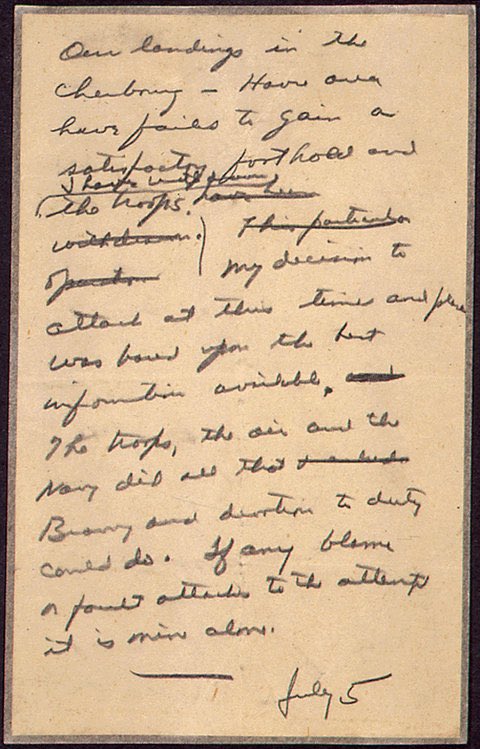 Our landings in the
Cherbourg - Havre area
have failed to gain a
satisfactory foothold and
I have withdrawn
the troops. have been
withdrawn. This particular
operation My decision to
attack at this time and place
was based upon the best
information available, and
The troops, the air and the
Navy did all that
Bravery and devotion to duty
could do. If any blame
or fault attaches to the attempt
it is mine alone.
July 5